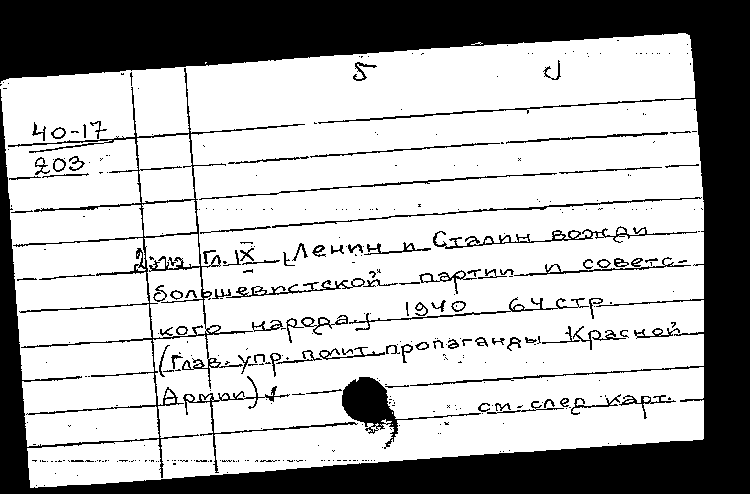 б
40-17
203
2 экз. Гл. IX [Ленин и Сталин вожди
большевистской партии и советс-
кого народа]. 1940 64 стр.
(Глав. упр. полит. пропаганды Красной
Армии)
см. след карт.